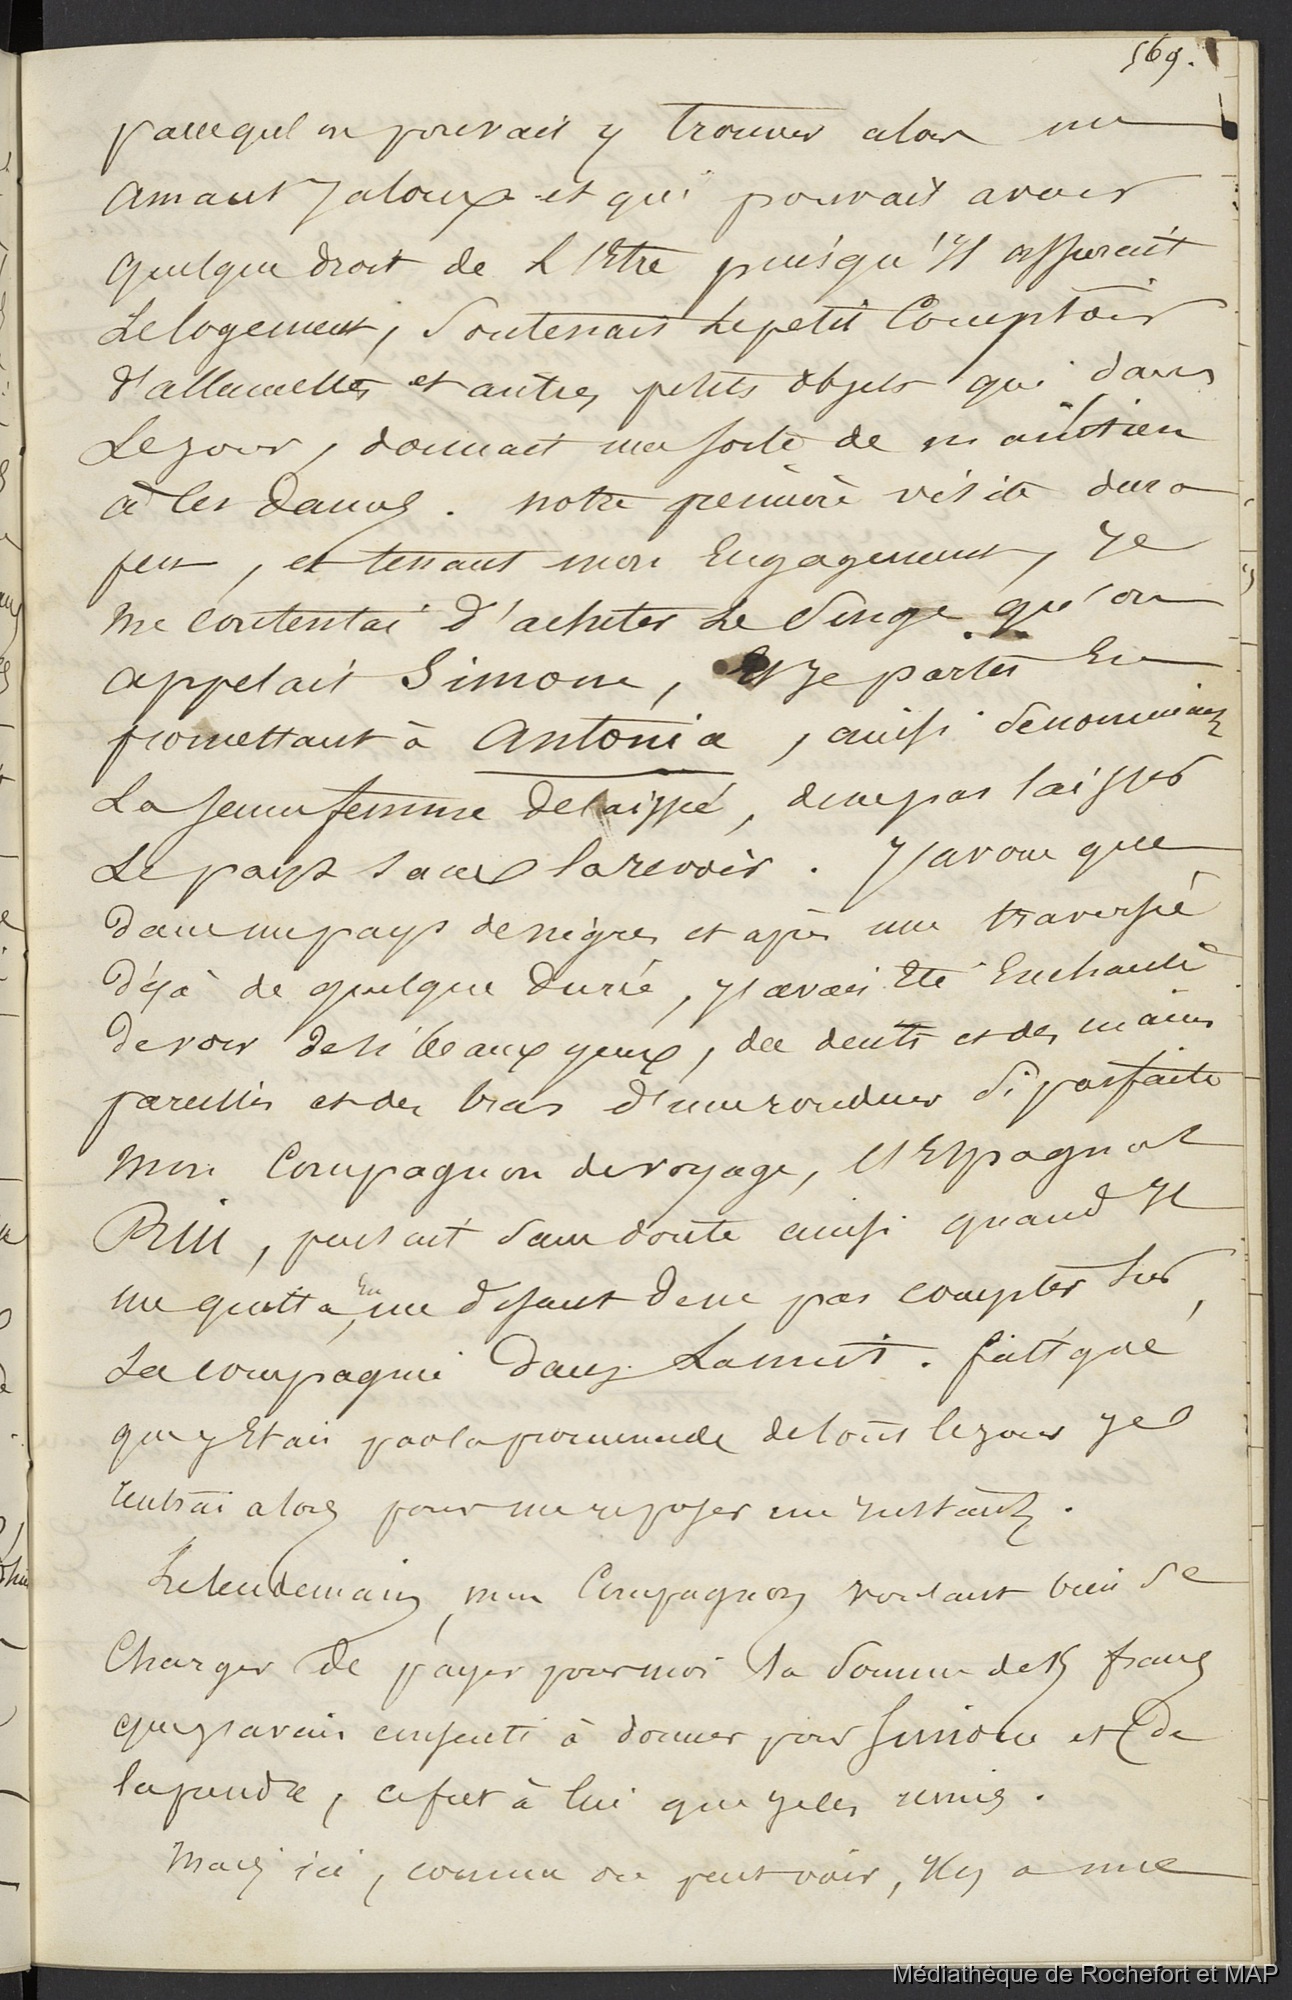 569.
parcequ'on pouvait y trouver alors un
amant jaloux et qui pouvait avoir
quelque droit de L'Etre puisqu'il assurait
Le logement, Soutenait Le petit Comptoir
d'allumettes et autres petits objets qui dans
Le jour, donnait une sorte de maintien
à ces dames. notre première visite dura
peu, et tenant mon Engagement, Je
me contentai d'acheter Le Singe qu'on
appelait Simone, et Je partis En
promettant à Antonia, ainsi denommions
La jeune femme delaissée, de ne pas laisser
Le pays sans la revoir. J'avoue que
dans un pays de nègres et après une traversée
déjà de quelque durée, J'avais Eté Enchanté
de voir de si beaux yeux, des dents et des mains
pareilles et des bras d'une rondeur Si parfaite
Mon Compagnon de voyage, l'Espagnol
, pensait Sans doute ainsi quand Il
me quitta, En me disant de ne pas compter Sur
Sa compagnie dans La nuit. fatigué
que J'Etais par la promenade de tout le jour Je
rentrai alors pour me reposer un Instant.
Le lendemain, mon Compagnon voulant bien Se
Charger de payer pour moi la Somme de francs
que J'avais consenti à donner pour Simone et de
la poudre, ce fut à lui que Je les remis.
Mais ici, comme on peut voir, Il y a une
Médiathèque de Rochefort et MAP